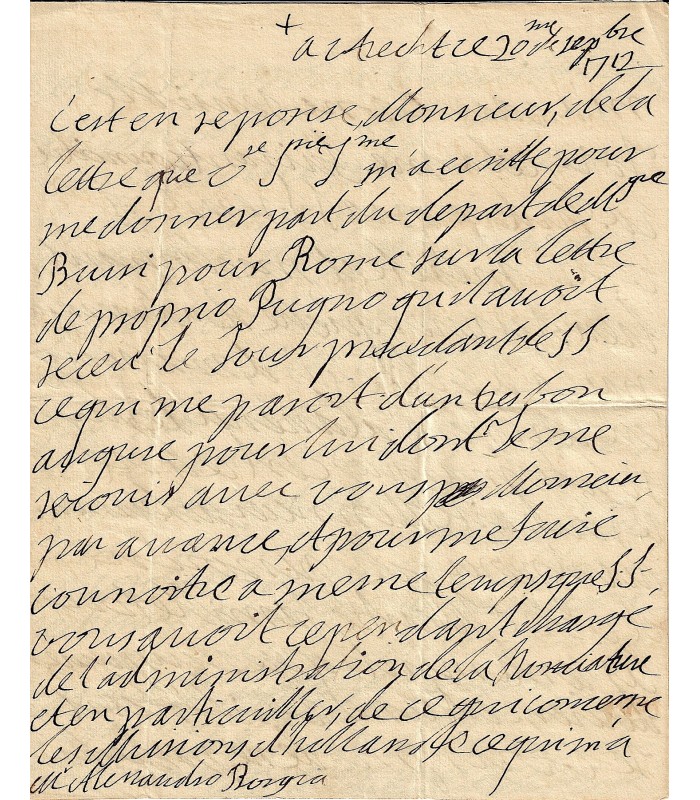 +
a utrecht ce 20me de sepbre
1712
c'est en reponse, Monsieur, de la
lettre que v re S rie S me m'a ecritte pour
me donner part du depart de Mgr
Bussi pour Rome sur la lettre
de proprio Pugno qu'il avoit
receu le Jour precedant de SS
ce qui me paroit d'un tres bon
augure pour lui dont Je me
rejouis avec vous Monsieur,
par avance, et pour me faire
connoitre a meme temps que S.S.
vous avoit cependant chargé
de l'administration de la Nonciature
et en particuiller, de ce qui concerne
les Missions d'hollande ce qui m'a
Mr Alessandro Borgia